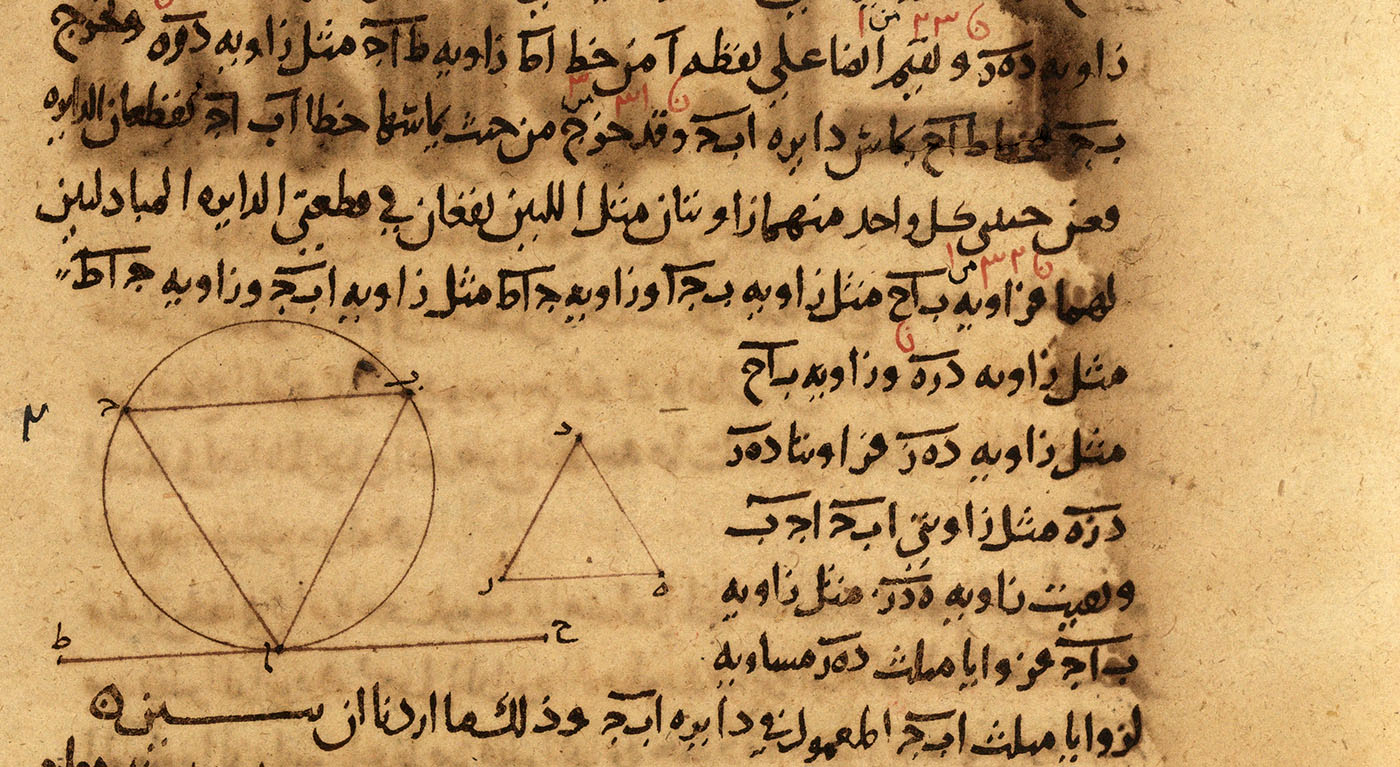 زاويه دهز و نقيم ايضا على نقطه ا من خط اط زاويه ط اج مثل زاويه دزه ونخرج
ب ج فخط ط اح يماس دايره ابج وقد خرج من حيث يماسها خطا اب اج يقطعان الدايره
فعن جنبتي كل واحد منهما زاويتان مثل اللتين يقعان في قطعتي الدايره المبادلتين
لهما فزاويه ب اح مثل زاويه ب ج ا وزاويه ج اط مثل زاويه ابج وزاويه ج اط
مثل زاويه دزه وزاويه ب اح
مثل زاويه دهز فزاويتا دهز
دزه مثل زاويتي ابج اجب
وبقيت زاويه هدز مثل زاويه
ب اج فزوايا مثلث دهز مساويه
لزوايا مثلث ابج المعمول في دايره ابج وذلك ما اردنا ان نبين ه
ب
ج
د
ز
ه
ط
ا
ح